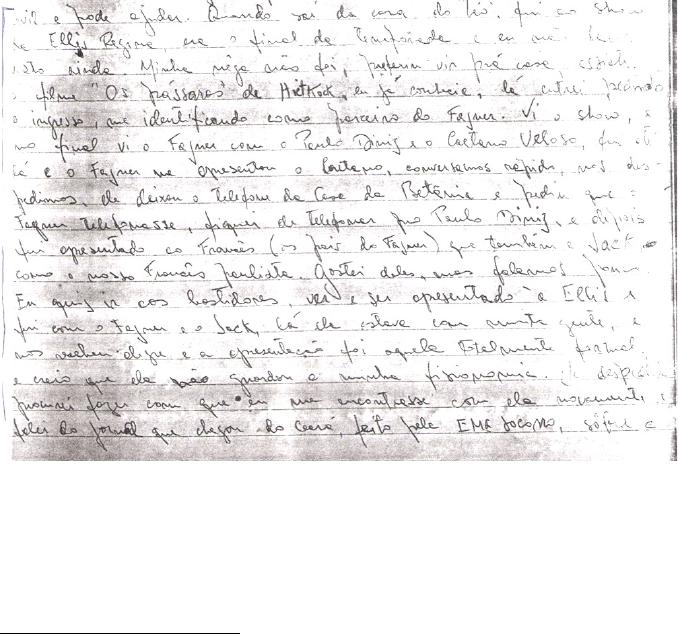 e pode ajudar. Quando saí da casa do tio, fui ao show
Ellis Regina, era o final de temporada e eu não
ainda. Minha nêga não foi, preferiu vir prá casa,
filme "Os pássaros" de Hitkock, eu já conhecia, lá entrei
o ingresso, me identificando como parceiro do Fagner. Vi o show,
no final vi o Fagner com o Paulo Diniz e o Caetano Veloso, fui
lá e o Fagner me apresentou o Caetano, conversamos rápido, nos des-
pedimos, ele deixou o telefone da Casa da Betânia e pediu que o
Fagner telefonasse, fiquei de telefonar pro Paulo Diniz, e depois
fui apresentado ao Francês (os pais do Fagner) que também é Jack
como o nosso Francês paulista. Gostei deles, mas falamos pouco.
Eu quis ir aos bastidores, ver e ser apresentado à Ellis e
fui com o Fagner e o Jack, lá ela estava com muita gente, e
nos recebeu alegre e a apresentação foi aquela totalmente formal
e creio que ela não guardou a minha fisionomia.
procurei fazer com que eu me encontrasse com ela novamente e
falei do jornal que chegou do Ceará, feito pela EMA Socorro,